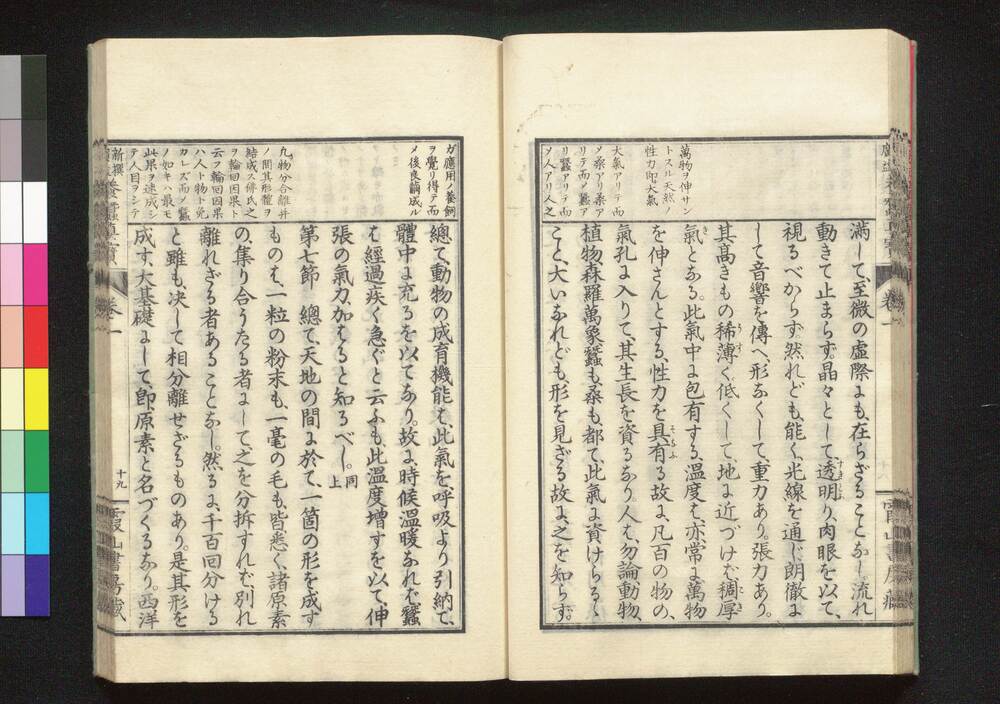 萬物ヲ伸サン
トスル天然ノ
性力即大氣
大氣アリテ而
ノ桑アリ桑ア
リテ而ノ蚕ア
リ蚕アリテ而
ノ人アリ人之
滿して、至微の虛際にも、在らざることなし、流れ
動きて止まらず。晶々として透明り、肉眼を以て、
視るべからず、然れども、能く、光線を通じ、朗徹に
して音響を傳へ、形なくして、重力あり。張力あり。
其高きもの稀薄く、低くして、地に近づけば、稠厚
氣となる。此氣中に包有する、温度も、亦常に萬物
を伸さんとする、性力を具有る故に、凡百の物の、
氣孔に入りて、其生長を資るなり、人も、勿論動物、
植物、森羅萬象、蠶も、桑も、都て、此氣に資けらるゝ
こと、大いなれども、形を見ざる故に、之を知らず。
ガ應用ノ養飼
ヲ覺リ得テ而
ノ後良繭成ル
凡物分合離幷
ノ間其形體ヲ
結成ス佛氏之
ヲ輪回因果ト
云フ輪回因果
ハ人ト物ト免
カレズ而ノ蠶
ノ如キハ最モ
此果ヲ速成シ
テ人目ヲシテ
總て、動物の成育機能は、此氣を呼吸より引納て、
體中に充るを以てなり。故に、時候温暖なれば、蠶
は經過疾く急ぐと云ふも、此温度增すを以て伸
張の氣力、加はると知るべし。同上
第七節　總て、天地の間に於て、一箇の形を成す
ものは、一粒の粉末も、一毫の毛も、皆悉く、諸原素
の、集り合うたる者にして、之を分拆すれば、別れ
離れざる者あることなし。然るに、千百回分ける
と雖も、决して相分離せざるものあり。是其形を
成す、大基礎にして、卽、原素と名づくるなり。西洋
新撰
養蠶真寳
卷一
十九
霞山書房藏